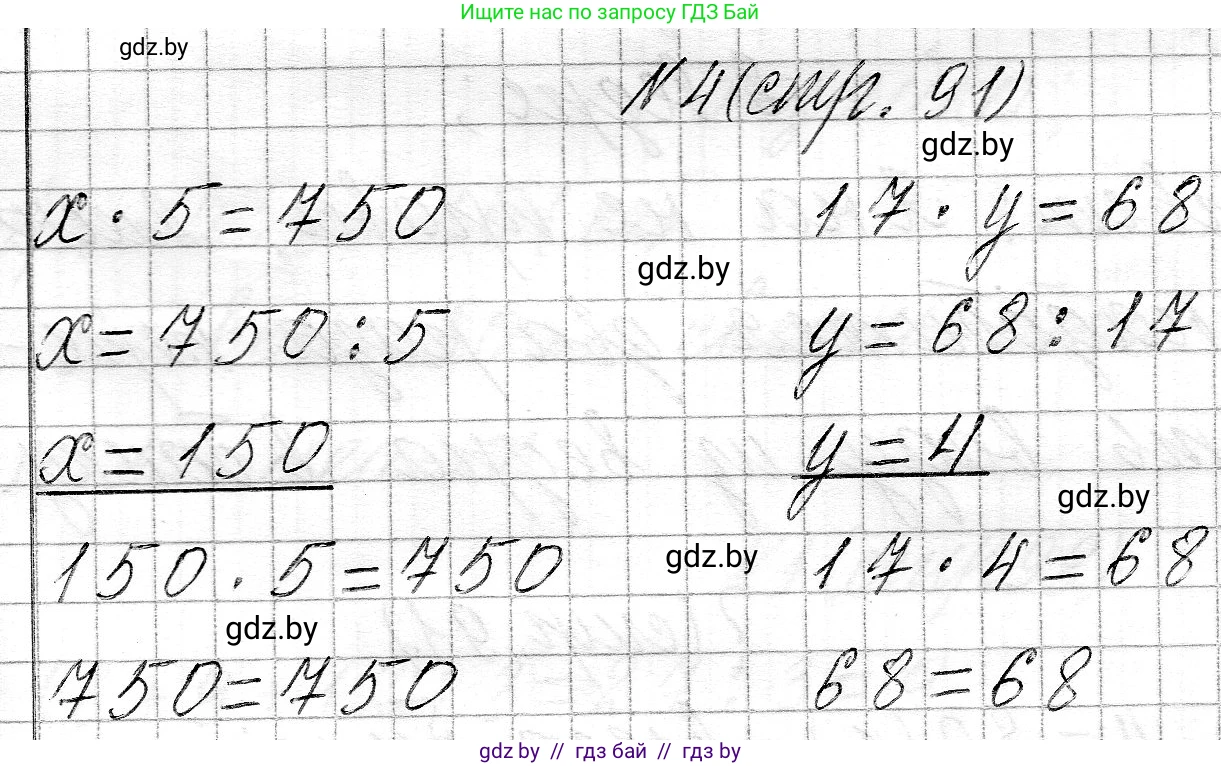 Ищите нас по запросу ГДЗ Бай
gdz.by
N 4 (стр. 91)
gdz.by
x · 5 = 750
17 · y = 68
gdz.by
x = 750 : 5
y = 68 : 17
x = 150
y = 4
gdz.by
150 · 5 = 750
gdz.by
17 · 4 = 68
gdz.by
750 = 750
68 = 68
gdz.by // гдз бай // гдз by